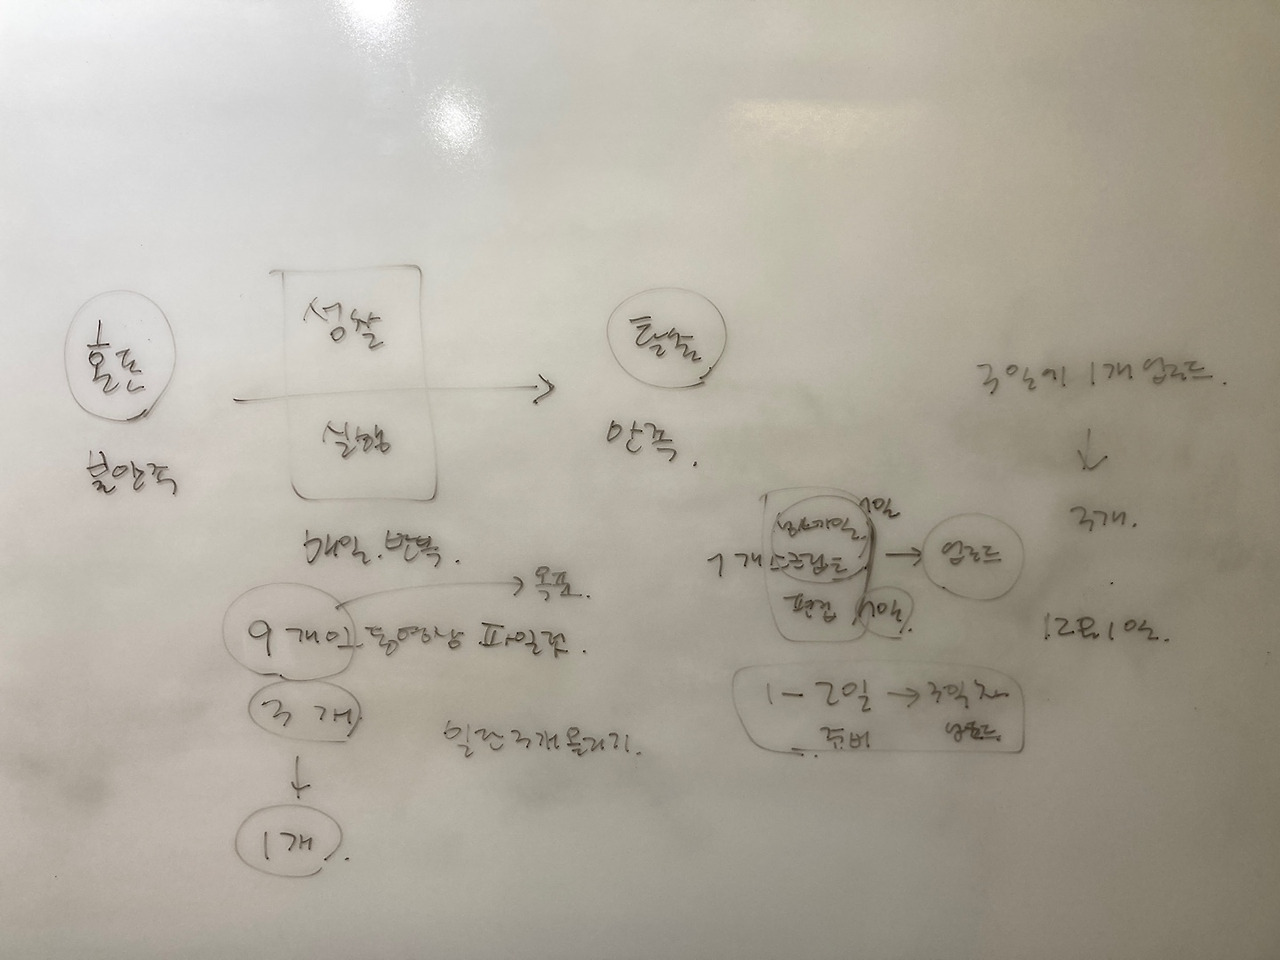 혼돈
불만족
성찰
실행
매일. 반복.
탈출
만족.
9개의 동영상 파일럿.
목표.
3개
1개.
일단 3개 올리기.
3일에 1개 업로드.
3개.
12월 1일.
1일
1개 스크립트
편집 1일.
업로드
1-2일 → 3일차
준비 업로드